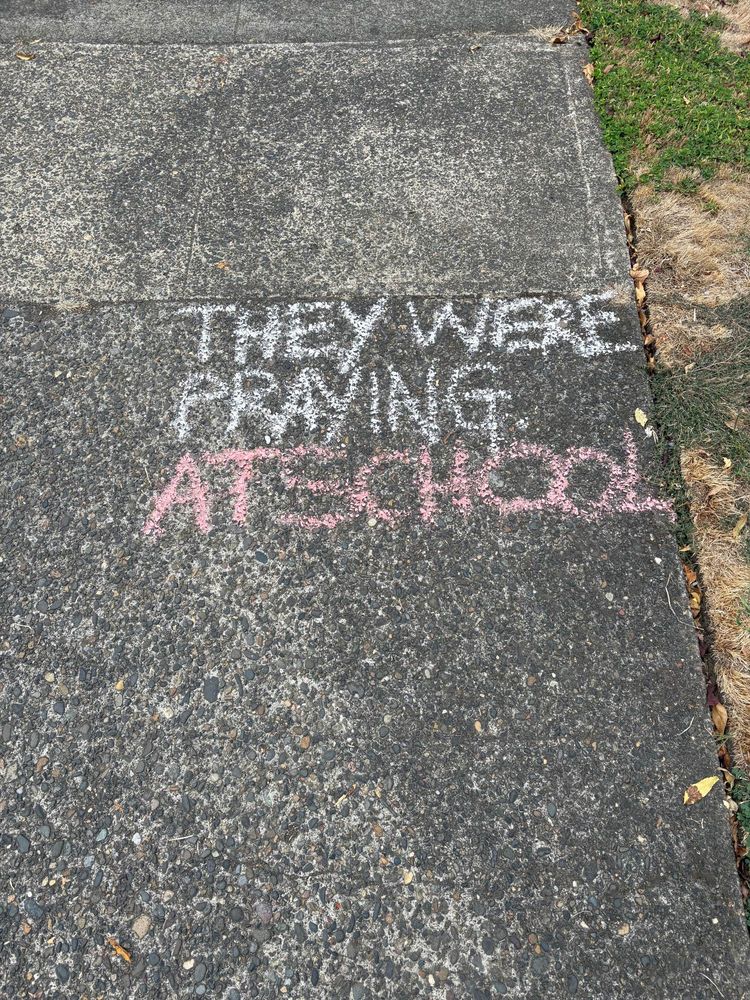 THEY WERE
PRAYING.
AT SCHOOL